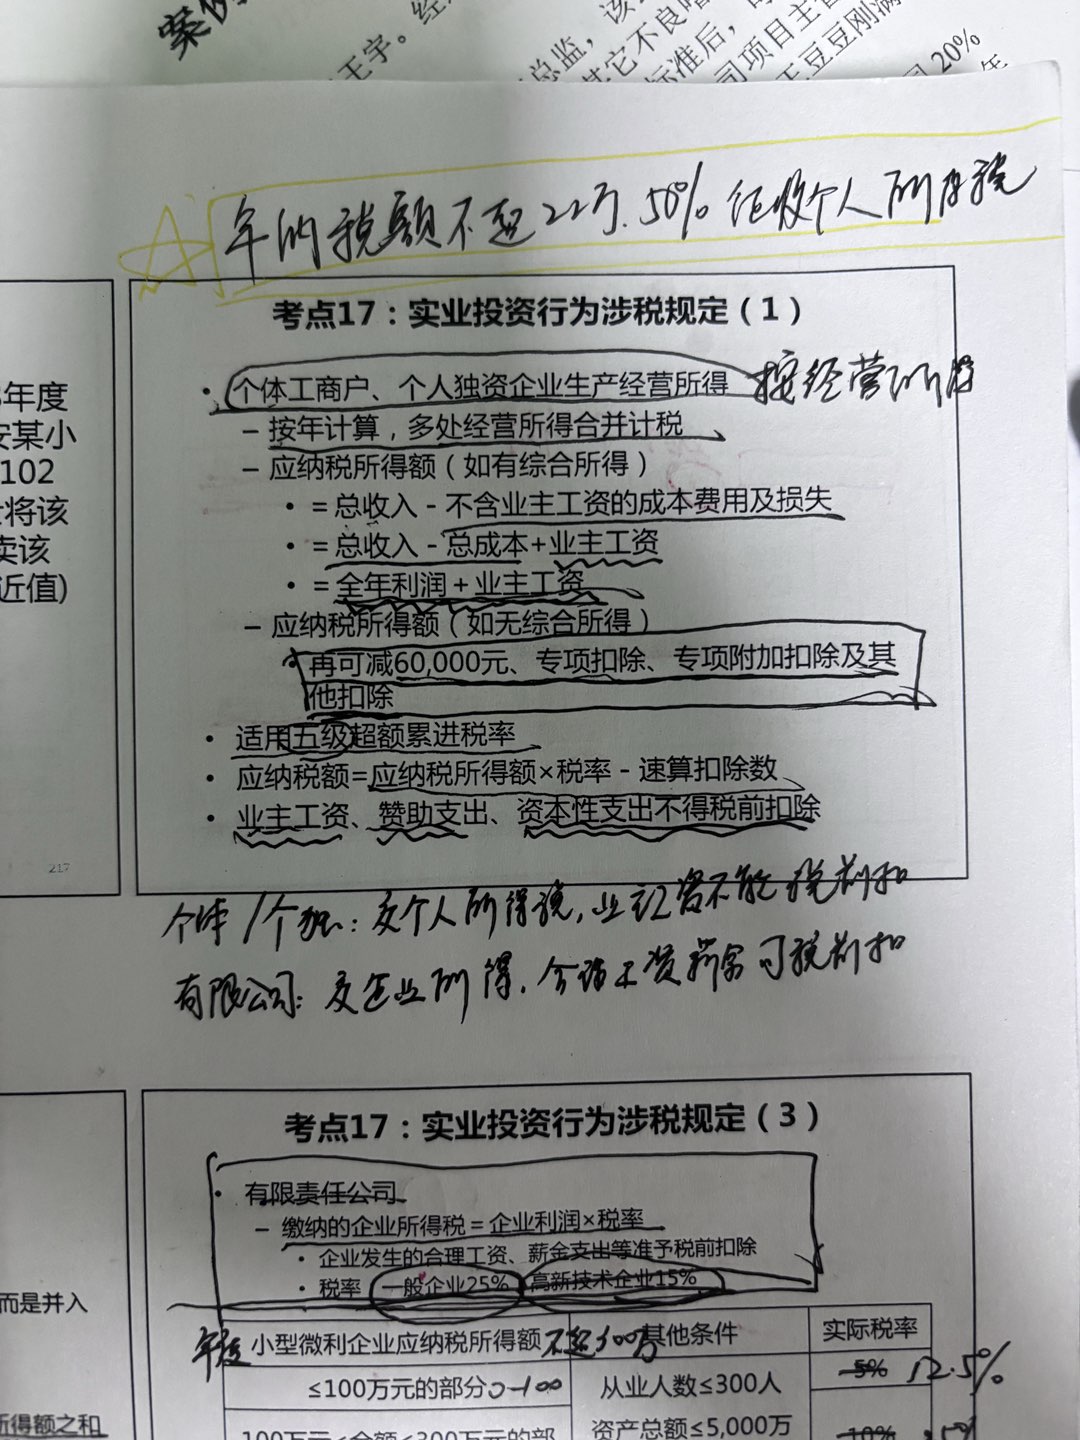 案例
王字。经
总监，该
其它不良嗜
标准后，
司项目主管
王豆豆刚满
司20%
年
年纳税额不超22万.50%征收个人所得税
考点17：实业投资行为涉税规定（1）
• 个体工商户、个人独资企业生产经营所得 按经营所得
– 按年计算，多处经营所得合并计税
– 应纳税所得额（如有综合所得）
• = 总收入 - 不含业主工资的成本费用及损失
• = 总收入 - 总成本+业主工资
• = 全年利润 + 业主工资
– 应纳税所得额（如无综合所得）
• 再可减60,000元、专项扣除、专项附加扣除及其
他扣除
• 适用五级超额累进税率
• 应纳税额=应纳税所得额×税率 - 速算扣除数
• 业主工资、赞助支出、资本性支出不得税前扣除
年度
安某小
102
将该
卖该
近值)
217
个体/个独：交个人所得税，业主工资不能税前扣
有限公司：交企业所得．合理工资薪金可税前扣
考点17：实业投资行为涉税规定（3）
• 有限责任公司
– 缴纳的企业所得税 = 企业利润×税率
• 企业发生的合理工资、薪金支出等准予税前扣除
• 税率 一般企业25% 高新技术企业15%
而是并入
年度 小型微利企业应纳税所得额 不超300万 其他条件 实际税率
≤100万元的部分 0-100 从业人数≤300人 5% 12.5%
所得额之和 100万元<金额≤300万元的部 资产总额≤5,000万 10%